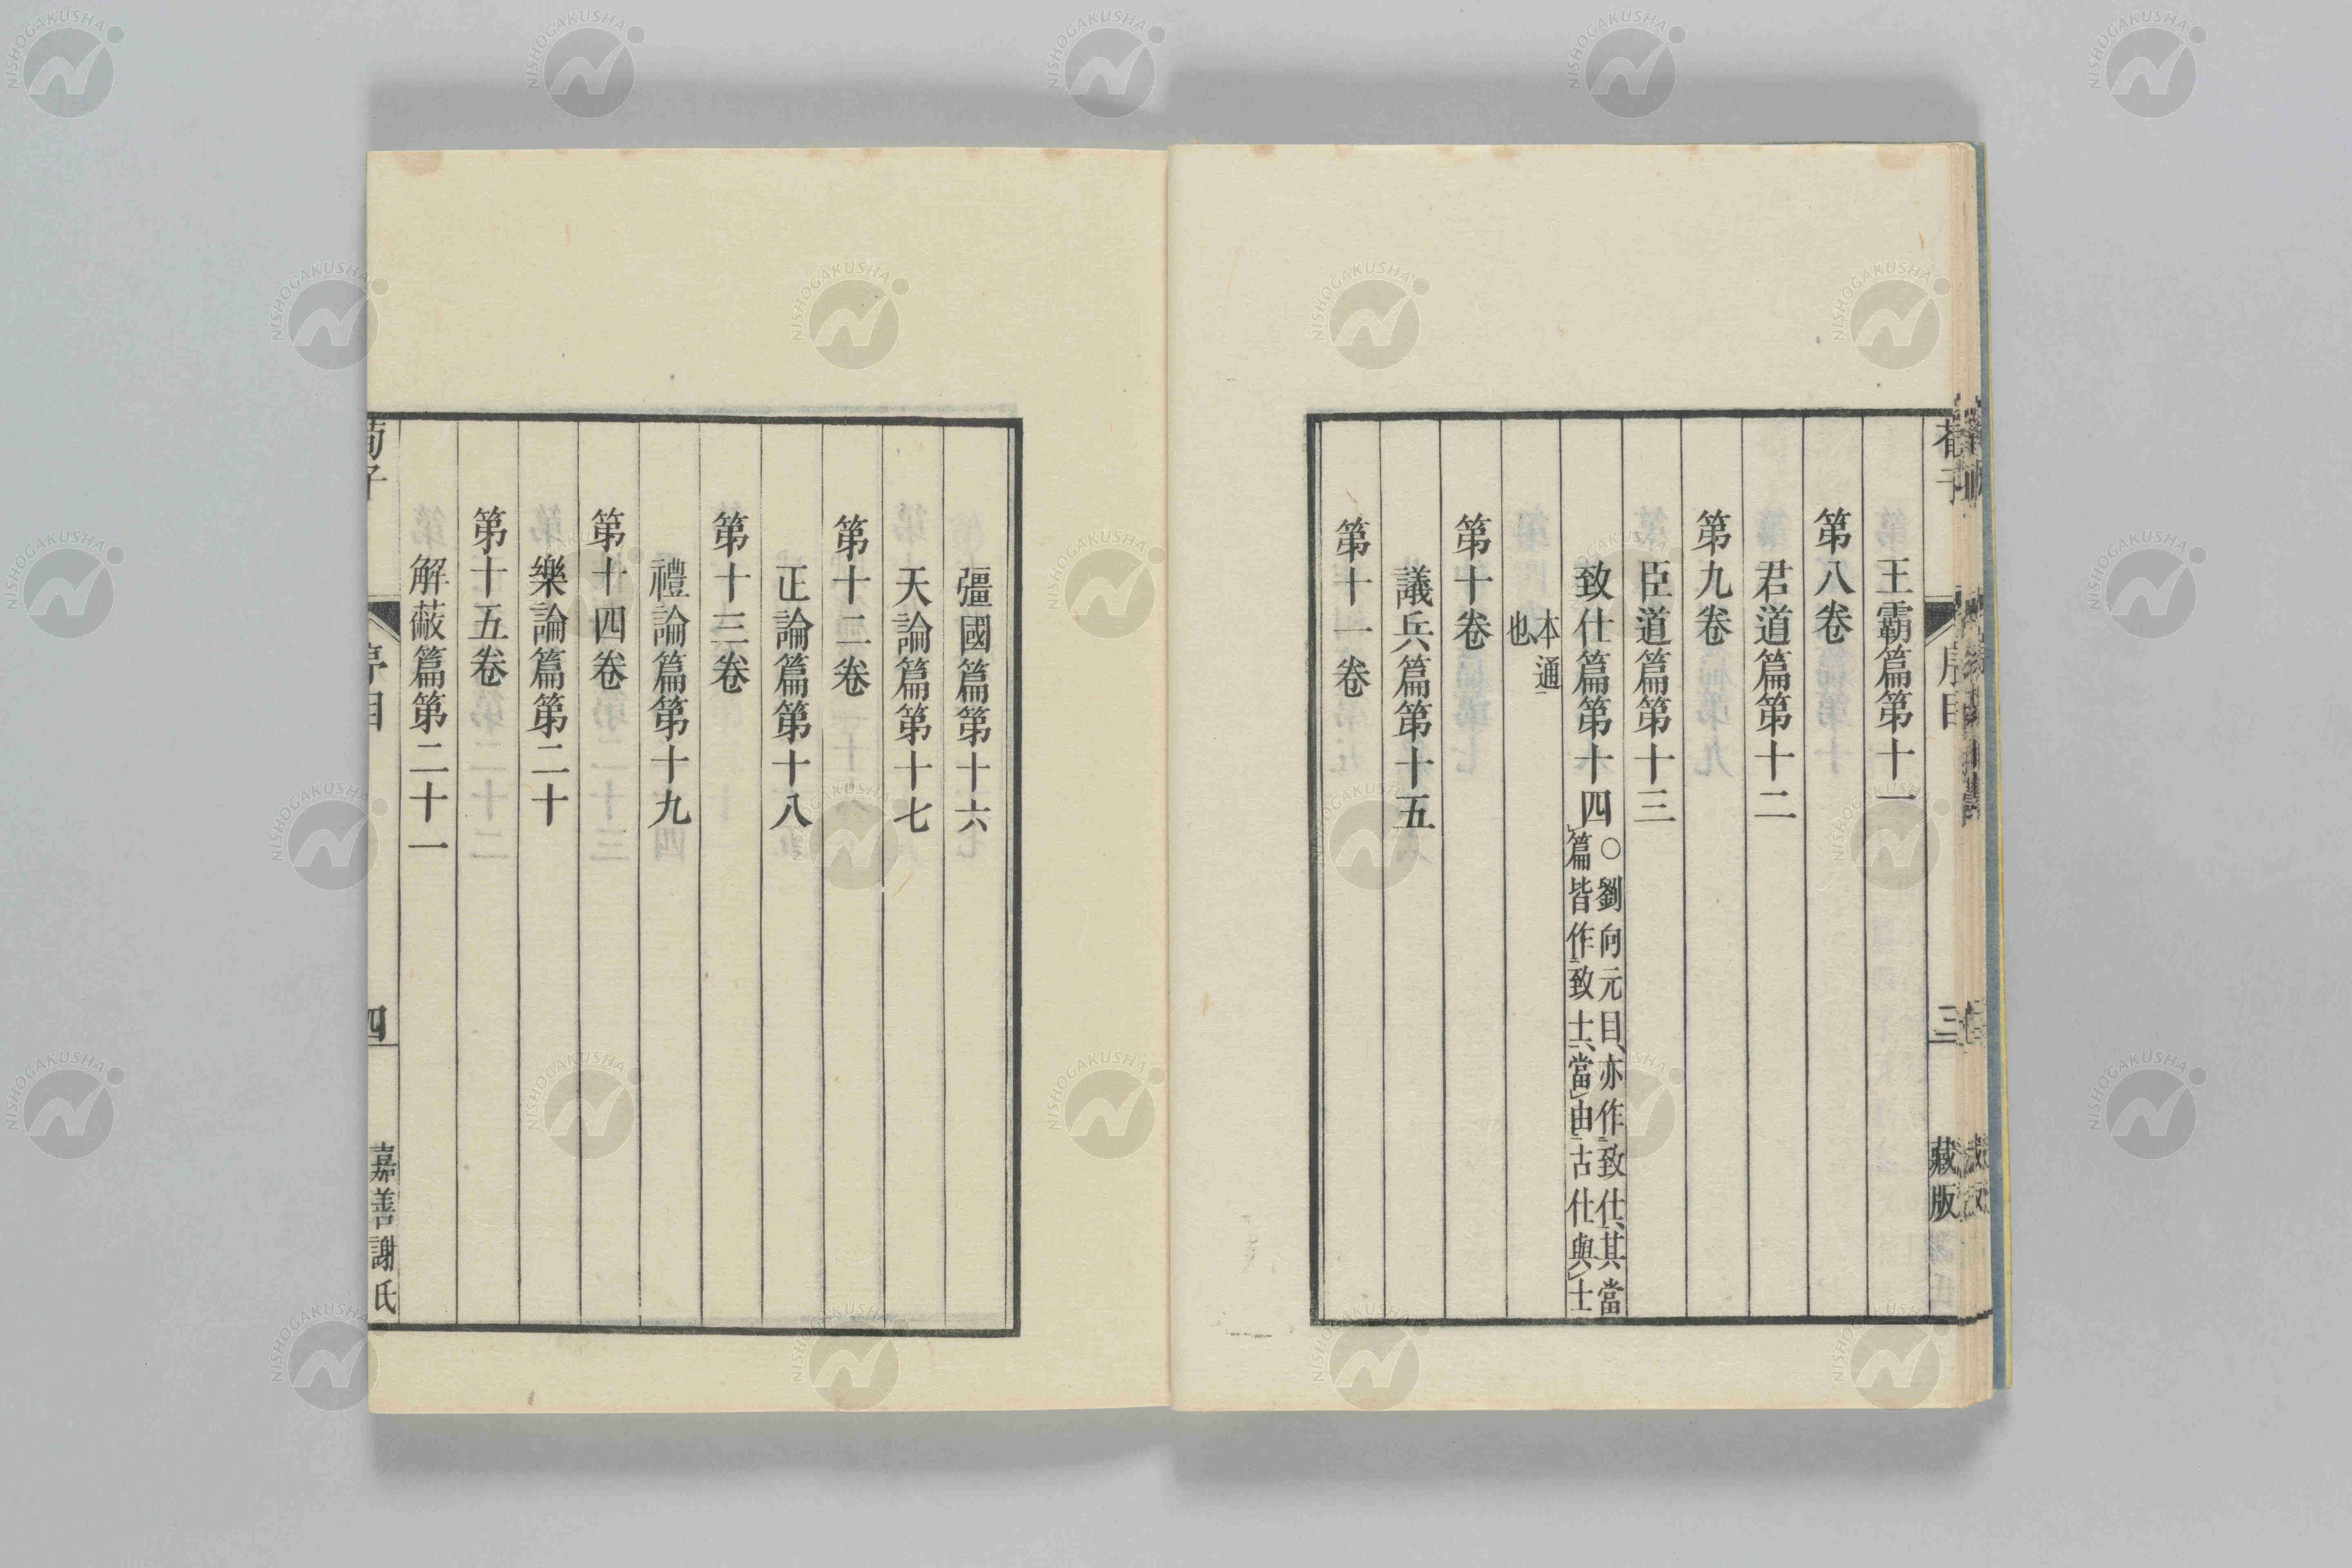 王霸篇第十一
第八卷
君道篇第十二
第九卷
臣道篇第十三
致仕篇第十四○劉向元目亦作致仕其當
篇皆作致士當由古仕與士
本通
也
第十卷
議兵篇第十五
第十一卷
荀子 序目 三 藏版
彊國篇第十六
天論篇第十七
第十二卷
正論篇第十八
第十三卷
禮論篇第十九
第十四卷
樂論篇第二十
第十五卷
解蔽篇第二十一
荀子 序目 四 嘉善謝氏
NISHOGAKUSHA